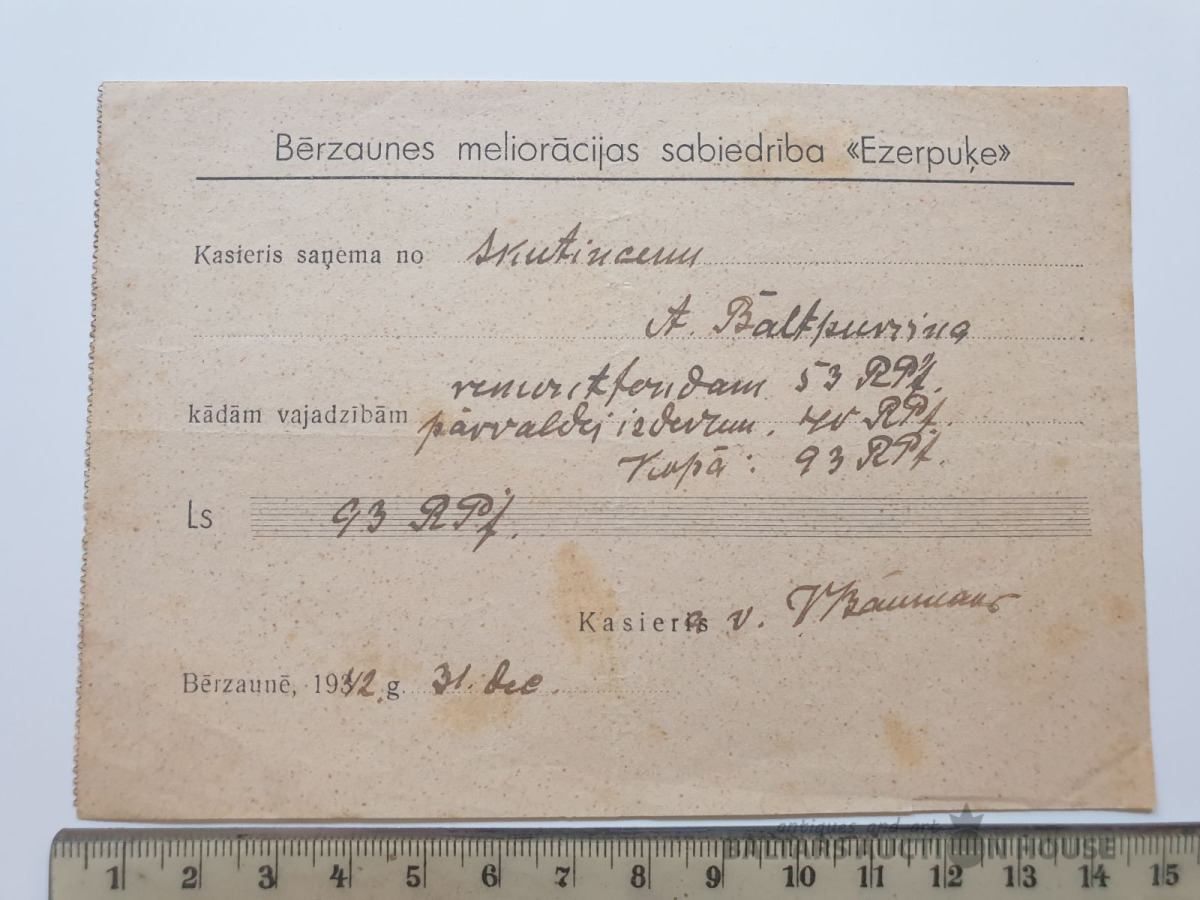 Bērzaunes meliorācijas sabiedrība «Ezerpuķe»
Kasieris saņema no
A. Baltpurviņa
remontfondam 53 RPf.
kādām vajadzībām pārvaldei izdevum. 40 RPf.
Kopā: 93 RPf.
Ls 93 RPf.
Kasieris v. V Baumans
Bērzaunē, 1942. g. 31. dec.
antiques and art
BALTARS AUCTION HOUSE
1 2 3 4 5 6 7 8 9 10 11 12 13 14 15